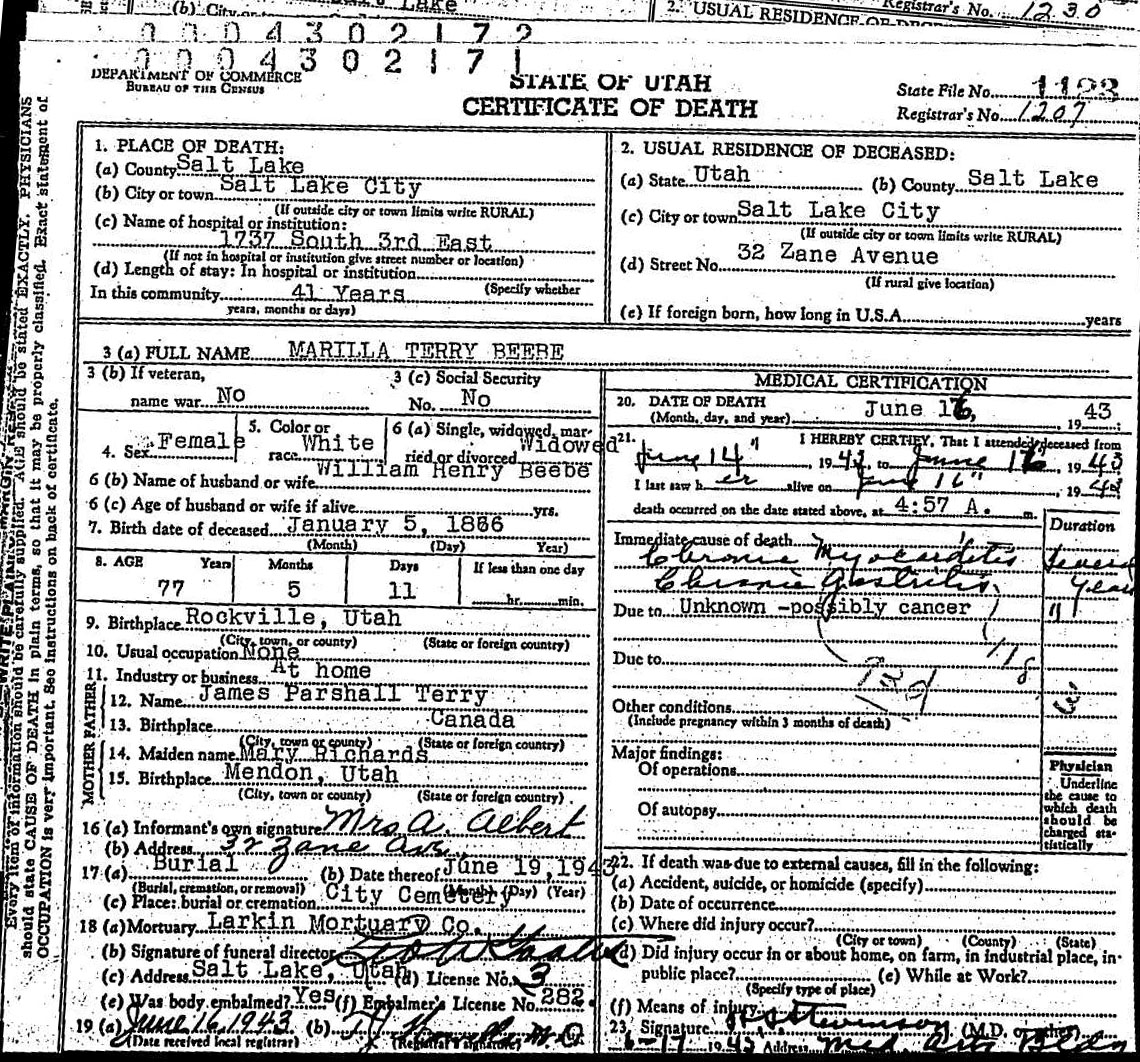 (b) City or town Salt Lake
2. USUAL RESIDENCE OF
Registrar's No. 1230
0 0 0 4 3 0 2 1 7 2
0 0 0 4 3 0 2 1 7 1
DEPARTMENT OF COMMERCE
BUREAU OF THE CENSUS
STATE OF UTAH
CERTIFICATE OF DEATH
State File No. 1123
Registrar's No. 1207
Every item of information should be carefully supplied. AGE should be stated EXACTLY. PHYSICIANS
should state CAUSE OF DEATH in plain terms, so that it may be properly classified. Exact statement of
OCCUPATION is very important. See instructions on back of certificate.
1. PLACE OF DEATH:
(a) County Salt Lake
(b) City or town Salt Lake City
(If outside city or town limits write RURAL)
(c) Name of hospital or institution:
1737 South 3rd East
(If not in hospital or institution give street number or location)
(d) Length of stay: In hospital or institution
(Specify whether
In this community 41 Years
years, months or days)
2. USUAL RESIDENCE OF DECEASED:
(a) State Utah (b) County Salt Lake
(c) City or town Salt Lake City
(If outside city or town limits write RURAL)
(d) Street No. 32 Zane Avenue
(If rural give location)
(e) If foreign born, how long in U.S.A. years
3 (a) FULL NAME MARILLA TERRY BEEBE
3 (b) If veteran, name war No
3 (c) Social Security No. No
4. Sex Female
5. Color or race White
6 (a) Single, widowed, married or divorced Widowed
6 (b) Name of husband or wife William Henry Beebe
6 (c) Age of husband or wife if alive yrs.
7. Birth date of deceased January 5, 1866
(Month) (Day) Year)
8. AGE Years Months Days If less than one day
77 5 11 hr. min.
9. Birthplace Rockville, Utah
(City, town, or county) (State or foreign country)
10. Usual occupation None
11. Industry or business At home
FATHER
12. Name James Parshall Terry
13. Birthplace Canada
(City, town or county) (State or foreign country)
MOTHER
14. Maiden name Mary Richards
15. Birthplace Mendon, Utah
(City, town or county) (State or foreign country)
16 (a) Informant's own signature Mrs A. Albert
(b) Address 32 Zane Ave
17 (a) Burial (b) Date thereof June 19, 1943
(Burial, cremation, or removal) (Month) (Day) (Year)
(c) Place: burial or cremation City Cemetery
18 (a) Mortuary Larkin Mortuary Co.
(b) Signature of funeral director
(c) Address Salt Lake, Utah (d) License No. 3
(e) Was body embalmed? Yes (f) Embalmer's License No. 282.
19 (a) June 16, 1943 (b)
(Date received local registrar) (Registrar's signature)
MEDICAL CERTIFICATION
20. DATE OF DEATH June 16, 1943
(Month, day, and year)
21. I HEREBY CERTIFY, That I attended deceased from
June 14" 1943, to June 16 1943
I last saw her alive on June 16" 1943
death occurred on the date stated above, at 4:57 A. m.
Duration
Immediate cause of death
Chronic Myocarditis Several
Chronic Gastritis Years
Due to Unknown -possibly cancer "
118
Due to
Other conditions
(Include pregnancy within 3 months of death)
Major findings:
Of operations
Of autopsy
Physician
Underline
the cause to
which death
should be
charged sta-
tistically
22. If death was due to external causes, fill in the following:
(a) Accident, suicide, or homicide (specify)
(b) Date of occurrence
(c) Where did injury occur?
(City or town) (County) (State)
(d) Did injury occur in or about home, on farm, in industrial place, in
public place? (e) While at Work?
(Specify type of place)
(f) Means of injury
23. Signature Stevenson (M.D. or other)
6-17 1943 Address Med Arts Bldg